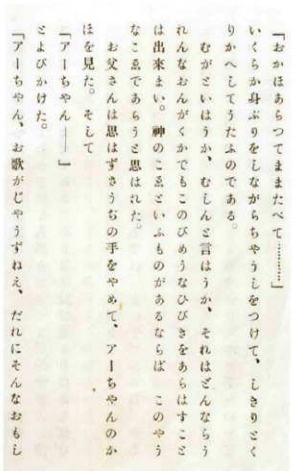 『おかほあらつてままたべて…………』
いくらか身ぶりをしながらちやうしをつけて、しきりとく
りかへしてうたふのである。
むがといはうか、むしんと言はうか、それはどんならう
れんなおんがくかでもこのびめうなひびきをあらはすこと
は出来まい。神のこゑといふものがあるならば このやう
なこゑであらうと思はれた。
お父さんは思はずさうぢの手をやめて、アーちやんのか
ほを見た。そして
『アーちやん――』
とよびかけた。
『アーちやん、お歌がじやうずねえ、だれにそんなおもし